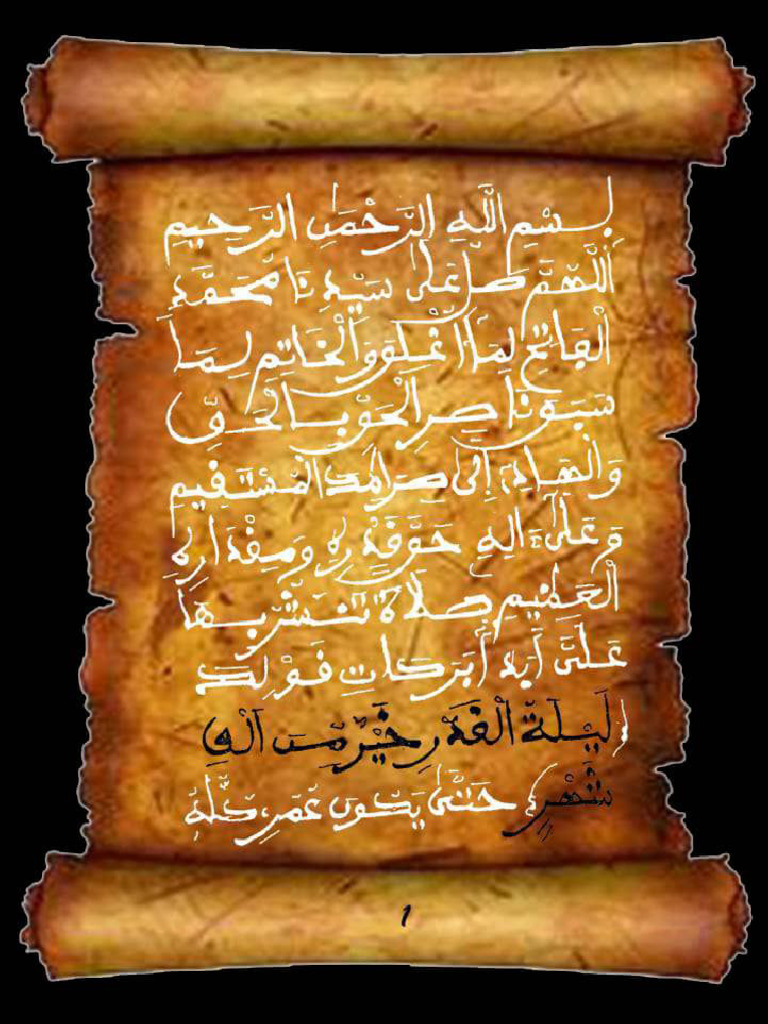 بِسْمِ اللَّهِ الرَّحْمَٰنِ الرَّحِيمِ
اللَّهُمَّ صَلِّ عَلَىٰ سَيِّدِنَا مُحَمَّدٍ
الْفَاتِحِ لِمَا أُغْلِقَ وَالْخَاتِمِ لِمَا
سَبَقَ نَاصِرِ الْحَقِّ بِالْحَقِّ
وَالْهَادِي إِلَىٰ صِرَاطِكَ الْمُسْتَقِيمِ
وَعَلَىٰ ءَالِهِ حَقَّ قَدْرِهِ وَمِقْدَارِهِ
الْعَظِيمِ صَلَاةً تَنْشُرُ بِهَا
عَلَيَّ أَبَدًا بَرَكَاتِ قَوْلِكَ
(لَيْلَةُ الْقَدْرِ خَيْرٌ مِنْ أَلْفِ
شَهْرٍ) حَتَّىٰ يَكُونَ عُمْرِي كُلُّهُ
1